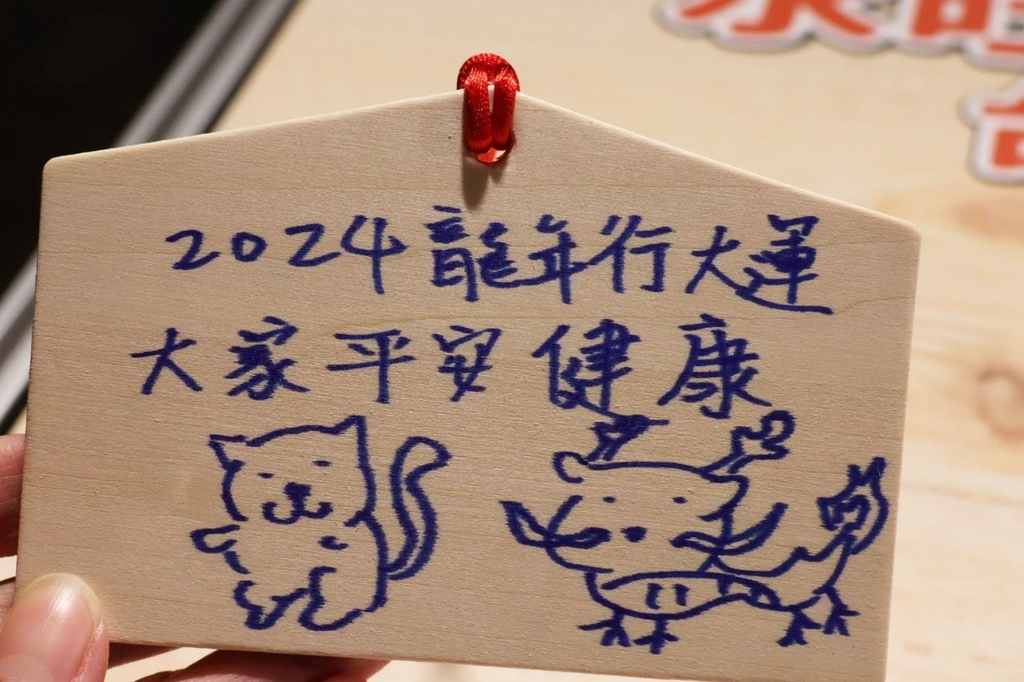 2024龍年行大運
大家平安健康